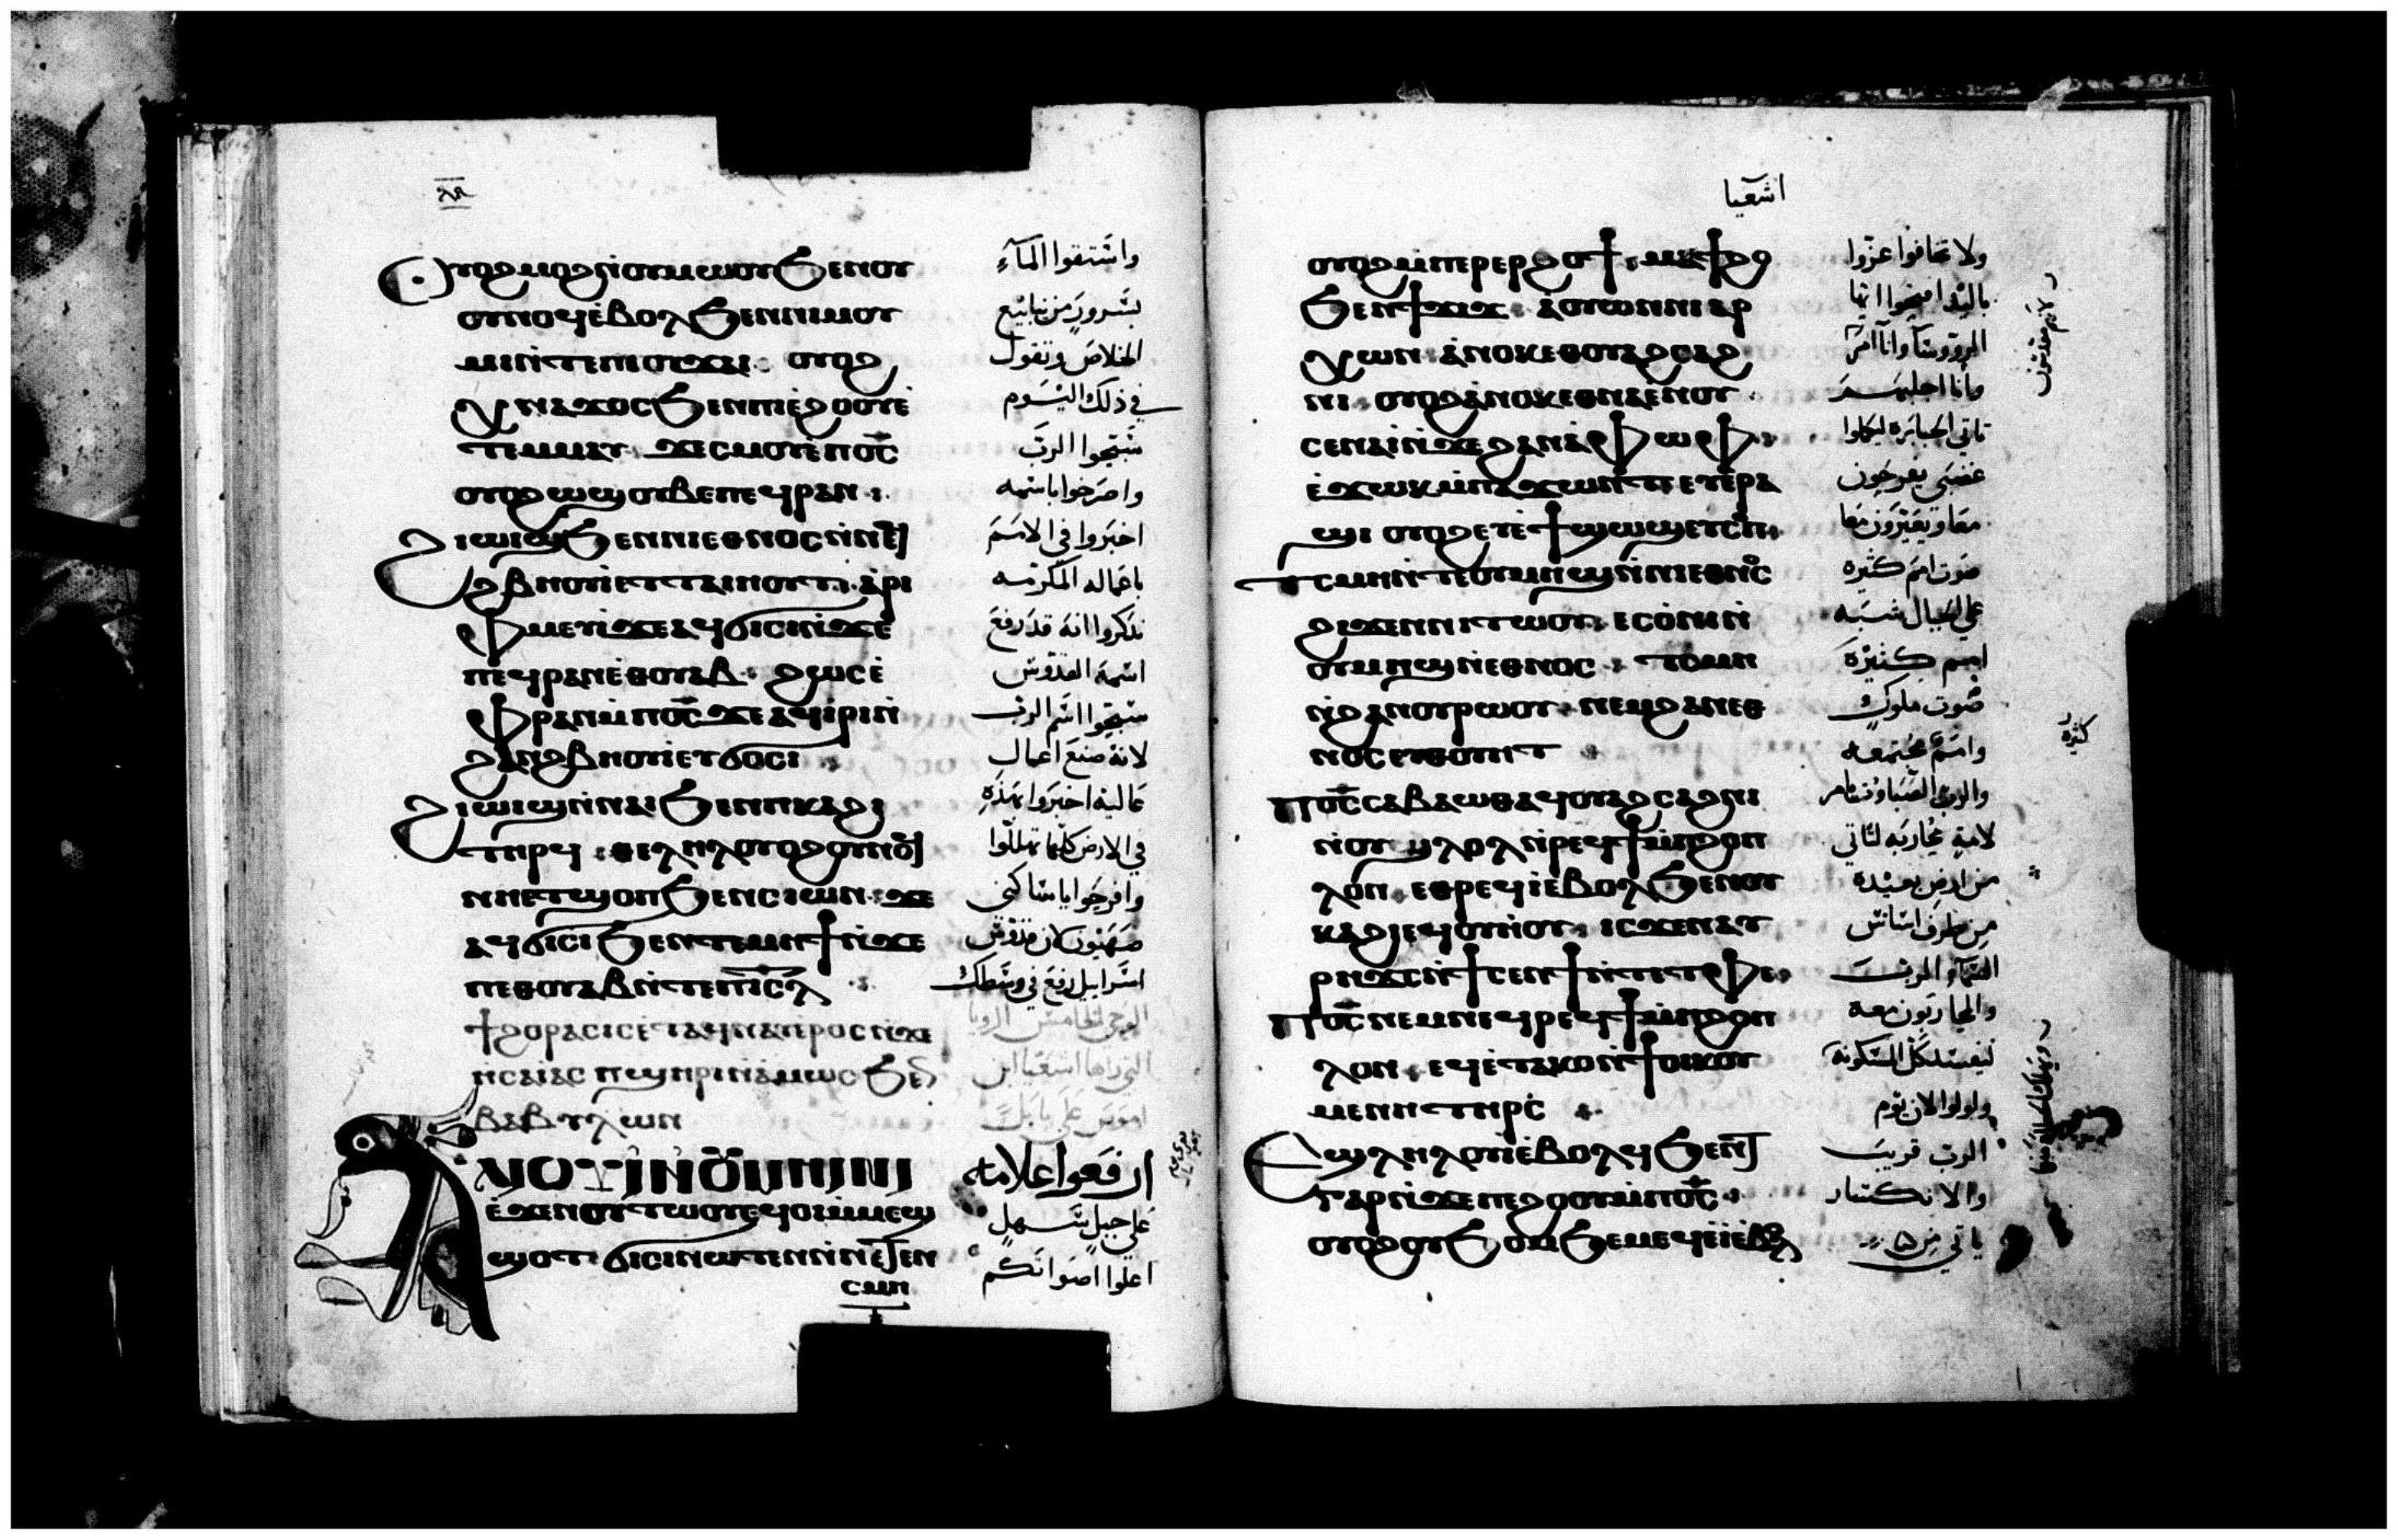 ⲯⲁ
Ⲟⲩⲟϩ ⲙⲟϩ ⲛ̀ⲟⲩⲙⲱⲟⲩ ϧⲉⲛ ⲟⲩ
ⲟⲩⲛⲟϥ ⲉ̀ⲃⲟⲗ ϧⲉⲛ ⲛⲓⲙⲟⲩ
ⲙⲓ ⲛ̀ⲧⲉ ⲡⲓⲟⲩϫⲁⲓ: ⲟⲩⲟϩ
ⲭⲛⲁϫⲟⲥ ϧⲉⲛ ⲡⲓⲉ̀ϩⲟⲟⲩ ⲉ̀
ⲧⲉⲙⲙⲁⲩ. ϫⲉ ⲥⲙⲟⲩ ⲉ̀ⲡⲟ̅ⲥ̅
ⲟⲩⲟϩ ⲱϣ ⲟⲩⲃⲉ ⲡⲉϥⲣⲁⲛ:
ϩⲓⲱⲓϣ ϧⲉⲛ ⲛⲓⲉⲑⲛⲟⲥ ⲛ̀ⲛⲉϥ
ϩⲃⲏⲟⲩⲓ̀ ⲉⲧⲧⲁⲓⲏⲟⲩⲧ: ⲁ̀ⲣⲓ
ⲫⲙⲉⲩⲓ̀ ϫⲉ ⲁϥϭⲓⲥⲓ ⲛ̀ϫⲉ
ⲡⲉϥⲣⲁⲛ ⲉ̀ⲑⲟⲩⲁⲃ: ϩⲱⲥ ⲉ̀
ⲫⲣⲁⲛ ⲙ̀ⲡⲟ̅ⲥ̅ ϫⲉ ⲁϥⲓ̀ⲣⲓ ⲛ̀
ϩⲁⲛϩⲃⲏⲟⲩⲓ̀ ⲉⲧϭⲟⲥⲓ:
ϩⲓⲱⲓϣ ⲛ̀ⲛⲁⲓ ϧⲉⲛ ⲡⲕⲁϩⲓ
ⲧⲏⲣϥ: ⲑⲉⲗⲏⲗ ⲟⲩⲟϩ ⲟⲩⲛⲟϥ
ⲛⲏⲉⲧϣⲟⲡ ϧⲉⲛ ⲥⲓⲱⲛ: ϫⲉ
ⲁϥϭⲓⲥⲓ ϧⲉⲛ ⲧⲉⲙⲏϯ ⲛ̀ϫⲉ
ⲡⲉⲑⲟⲩⲁⲃ ⲛ̀ⲧⲉ ⲡⲓ̅ⲥ̅ⲗ̅
ϯϩⲟⲣⲁⲥⲓⲥ ⲉ̀ⲧⲁϥⲛⲁⲩ ⲉ̀ⲣⲟⲥ ⲛ̀ϫⲉ
ⲏⲥⲁⲓ̀ⲁⲥ ⲡϣⲏⲣⲓ ⲛ̀ⲁ̀ⲙⲱⲥ ϧⲁ
ⲃⲁⲃⲩⲗⲱⲛ
ⲀⲖⲒⲞⲨⲒ̀ ⲚⲞⲨⲘⲎⲒⲚⲒ
ⲉ̀ϫⲉⲛ ⲟⲩⲧⲱⲟⲩ ⲉϥⲟⲓ ⲙ̀ⲙⲉϣ
ϣⲟⲧ: ϭⲓⲥⲓ ⲛⲱⲧⲉⲛ ⲛ̀ⲛⲉⲧⲉⲛ
ⲥⲙⲏ
واستقوا المآء
بسرور من ينابيع
الخلاص وتقول
في ذلك اليوم
سبحوا الرب
واصرخوا باسمه
اخبروا في الامم
باعماله المكرمه
تذكروا انه قد رفع
اسمه القدوس
سبحوا اسم الرب
لانه صنع اعمال
عاليه اخبروا بهذه
في الارض كلها تهللوا
وافرحوا يا ساكني
صهيون لان قدوس
اسراييل رفع في وسطك
الوحي الخامس الرويا
التي راها اشعيا ابن
اموص علي بابل
ارفعوا علامه
علي جبل سهل
اعلوا اصواتكم
اشعيا
ⲟⲩⲟϩ ⲙ̀ⲡⲉⲣⲉⲣϩⲟϯ: ⲙⲁϯϩⲟ
ϧⲉⲛ ϯϫⲓϫ: ⲁ̀ⲟⲩⲱⲛ ⲛⲓⲁⲣ
ⲭⲱⲛ: ⲁ̀ⲛⲟⲕ ⲉⲑⲟⲩⲁϩⲥⲁϩ
ⲛⲓ: ⲟⲩⲟϩ ⲁ̀ⲛⲟⲕ ⲉⲑⲛⲁⲉ̀ⲛⲟⲩ
ⲥⲉⲛⲁⲓ̀ ⲛ̀ϫⲉ ϩⲁⲛⲁ̀ⲫⲱⲫ:
ⲉ̀ϫⲱⲕ ⲙ̀ⲡⲁϫⲱⲛⲧ ⲉⲩⲉ̀ⲣⲁ
ϣⲓ ⲟⲩⲟϩ ⲉⲩⲉ̀ϯϣⲱϣ ⲉⲩⲥⲟⲡ:
ⲧⲥⲙⲏ ⲛ̀ⲧⲉ ⲟⲩⲙⲏϣ ⲛ̀ⲛⲓⲉⲑⲛⲟⲥ
ϩⲓϫⲉⲛ ⲛⲓⲧⲱⲟⲩ: ⲉⲥⲟ̀ⲛⲓ ⲛ̀
ⲟⲩⲙⲏϣ ⲛ̀ⲉⲑⲛⲟⲥ: ⲧⲥⲙⲏ
ⲛ̀ϩⲁⲛⲟⲩⲣⲱⲟⲩ: ⲛⲉⲙ ϩⲁⲛⲉⲑ
ⲛⲟⲥ ⲉⲩⲑⲟⲩⲏⲧ
Ⲡⲟ̅ⲥ̅ ⲥⲁⲃⲁⲱⲑ ⲁϥⲟⲩⲁϩⲥⲁϩⲛⲓ
ⲛ̀ⲟⲩϣⲗⲟⲗ ⲛ̀ⲣⲉϥϯ ⲙ̀ⲡϩⲟⲡ
ⲗⲟⲛ: ⲉⲑⲣⲉϥⲓ̀ ⲉ̀ⲃⲟⲗ ϧⲉⲛ ⲟⲩ
ⲕⲁϩⲓ ⲉϥⲟⲩⲏⲟⲩ: ⲓⲥϫⲉⲛ ⲁⲩ
ⲣⲏϫⲥ ⲛ̀ϯⲥⲉⲛϯ ⲛ̀ⲧⲉ ⲧⲫⲉ:
Ⲡⲟ̅ⲥ̅ ⲛⲉⲙ ⲛⲉϥⲣⲉϥϯ ⲙ̀ⲡϩⲟⲡ
ⲗⲟⲛ: ⲉϥⲉ̀ⲧⲁⲕⲟ ⲛ̀ϯⲟⲓⲕⲟⲩ
ⲙⲉⲛⲏ ⲧⲏⲣⲥ̀:
Ⲉϣⲗⲏⲗⲟⲩⲓ̀ ⲉ̀ⲃⲟⲗ ϥϧⲉⲛⲧ
ⲅⲁⲣ ⲛ̀ϫⲉ ⲡⲉ̀ϩⲟⲟⲩ ⲙ̀ⲡⲟ̅ⲥ̅:
ⲟⲩⲟϩ ⲟⲩϧⲟⲙϧⲉⲙ ⲉϥⲉ̀ⲓ̀ ⲉ̀ⲃⲟⲗ
ولا تخافوا عزوا
باليد افتحوا ايها
الرووسا وانا امر
وانا اجلبهم
تاتي الجبابره ليكملوا
غضبي يفرحون
معا ويعيرون معا
صوت امم كثيره
علي الجبال شبه
امم كثيره
صوت ملوك
وامم مجتمعه
والرب الصباووت امر
لامة محاربه لتاتي
من ارض بعيده
من طرف اساس
السمآء الرب
والمحاربون معه
ليفسد كل المسكونه
ولولوا لان يوم
الرب قريب
والانكسار
ياتي من
كثيره